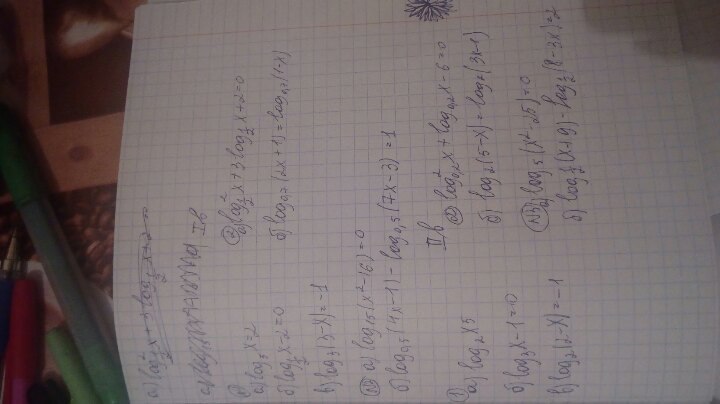 а) log²½ x + 3 log½ x + 2 = 0
I в
①
а) log₅ x = 2
б) log½ x - 2 = 0
в) log₃ (3-x) = -1
②
а) log²½ x + 3 log½ x + 2 = 0
б) log₀,₇ (2x+1) = log₀,₇ (1-x)
а) log₁₅ (x²-16) = 0
б) log₀,₅ (4x-1) - log₀,₅ (7x-3) = 1
II в
①
а) log₂ x 5
б) log₃ x - 1 = 0
в) log₂ (2-x) = -1
② а) log²₀,₂ x + log₀,₂ x - 6 = 0
б) log₂ (5-x) = log₂ (3x-1)
№3
а) log₅ (x²-25) = 0
б) log½ (x+9) - log½ (8-3x) = 2